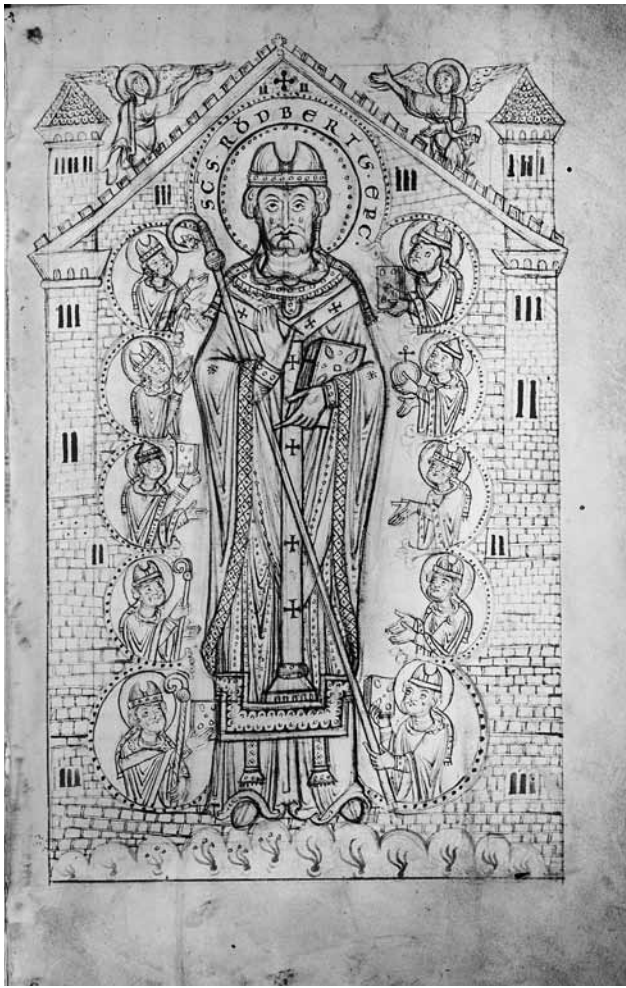 SCS·RŎDBERTꝰ·EPC·